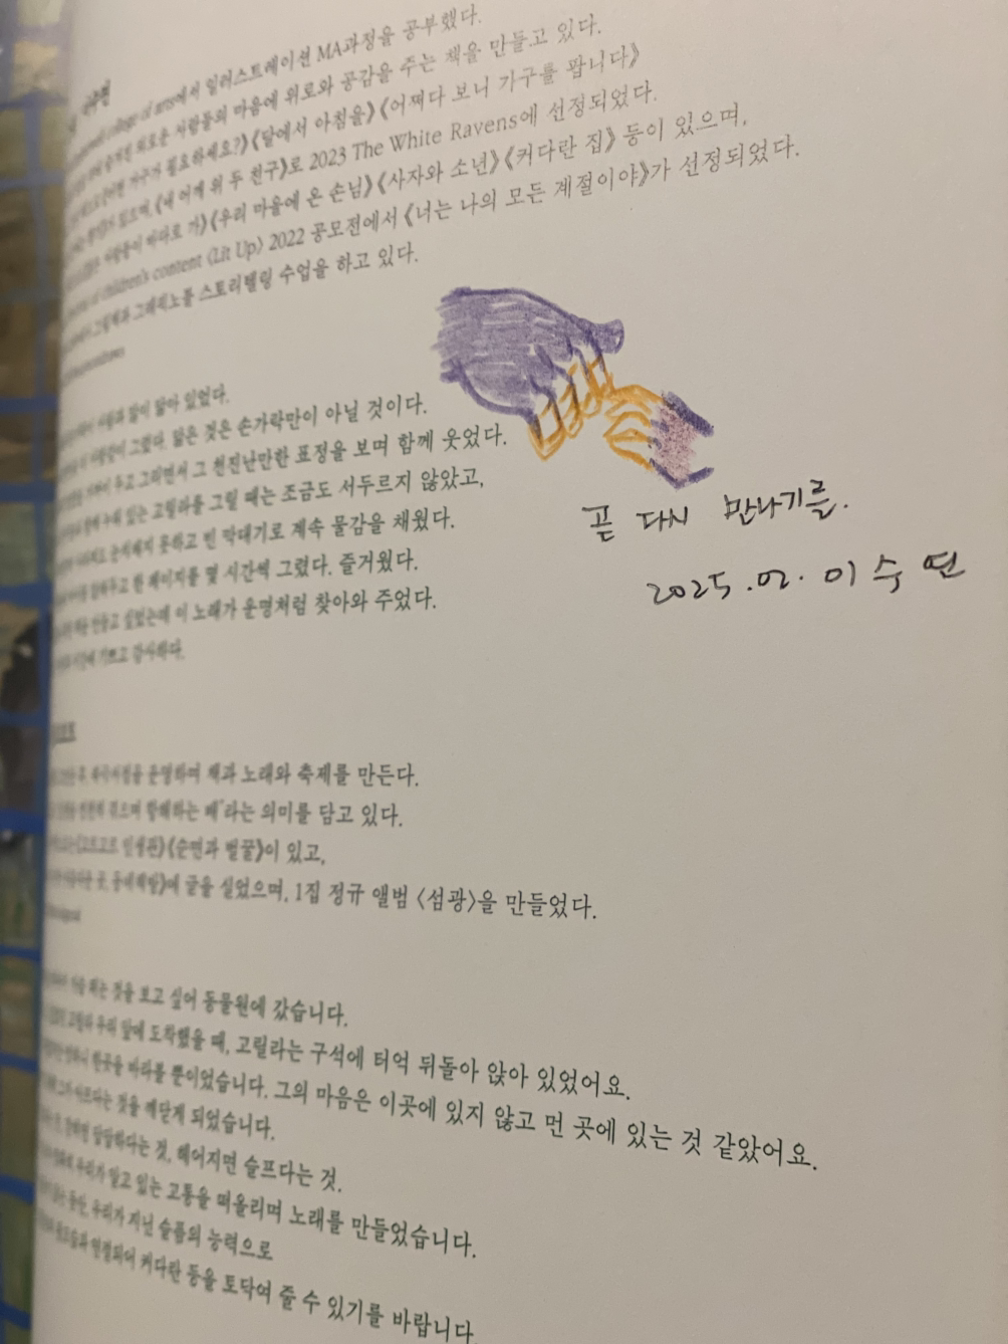 college of arts에서 일러스트레이션 MA과정을 공부했다.
외로운 사람들의 마음에 위로와 공감을 주는 책을 만들고 있다.
가구가 필요하세요?》《달에서 아침을》《어쩌다 보니 가구를 팝니다》
《내 어깨 위 두 친구》로 2023 The White Ravens에 선정되었다.
바다로 가》《우리 마을에 온 손님》《사자와 소년》《커다란 집》 등이 있으며,
of children's content 〈Lit Up〉 2022 공모전에서 《너는 나의 모든 계절이야》가 선정되었다.
그림책과 그래픽노블 스토리텔링 수업을 하고 있다.
많이 닮아 있었다.
그랬다. 닮은 것은 손가락만이 아닐 것이다.
두고 그리면서 그 천진난만한 표정을 보며 함께 웃었다.
누워 있는 고릴라를 그릴 때는 조금도 서두르지 않았고,
못하고 빈 막대기로 계속 물감을 채웠다.
한 페이지를 몇 시간씩 그렸다. 즐거웠다.
만들고 싶었는데 이 노래가 운명처럼 찾아와 주었다.
기쁘고 감사하다.
곧 다시 만나기를.
2025.02. 이수연
운영하며 책과 노래와 축제를 만든다.
겪으며 항해하는 배”라는 의미를 담고 있다.
인생판》《순면과 벌꿀》이 있고,
글을 실었으며, 1집 정규 앨범 〈섬광〉을 만들었다.
뛰는 것을 보고 싶어 동물원에 갔습니다.
고릴라 우리 앞에 도착했을 때, 고릴라는 구석에 터억 뒤돌아 앉아 있었어요.
한곳을 바라볼 뿐이었습니다. 그의 마음은 이곳에 있지 않고 먼 곳에 있는 것 같았어요.
것을 깨닫게 되었습니다.
답답하다는 것, 헤어지면 슬프다는 것.
우리가 알고 있는 고통을 떠올리며 노래를 만들었습니다.
동안, 우리가 지닌 슬픔의 능력으로
연결되어 커다란 등을 토닥여 줄 수 있기를 바랍니다.